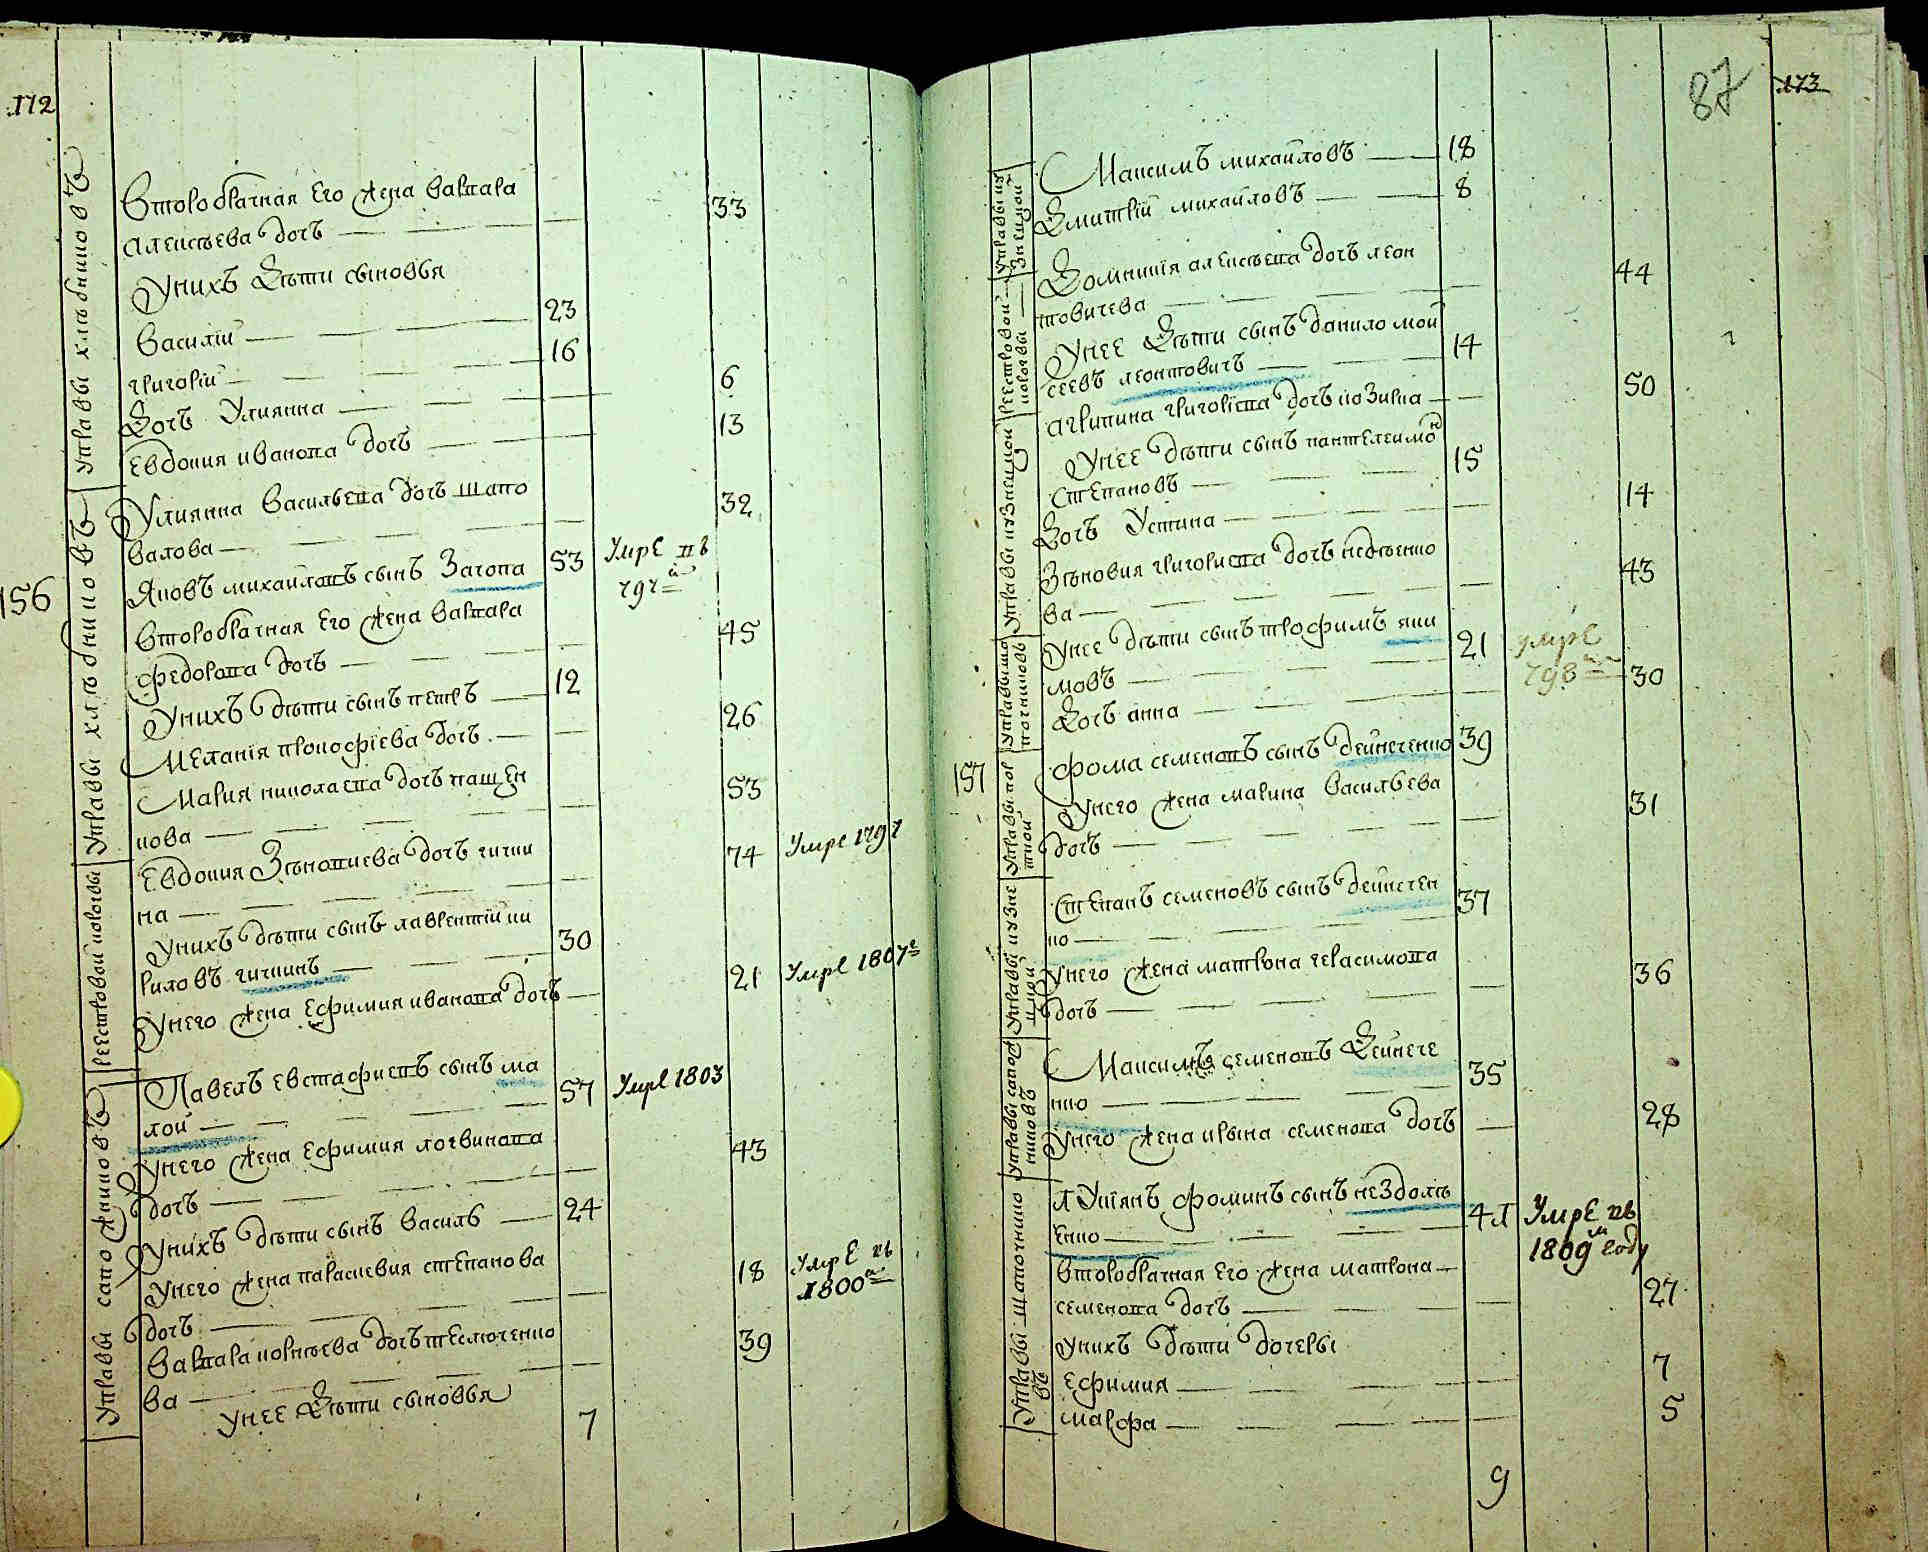 172
Управы хлѣбниковъ
Второбрачная его жена варвара
33
алексѣева дочь
Унихъ дѣти сыновья
Василий
23
григорій
16
Дочь Улиянна
6
Евдокия иванова дочь
13
Управы хлѣбниковъ
Улиянна васильева дочь шапо
валова
32
156
Яковъ михайловъ сынъ
53
Умре въ
Второбрачная его жена варвара
федорова дочь
45
Унихъ дѣти сынъ петръ
12
Мелания прокофіева дочь
26
Мария николаева дочь пащен
кова
53
реестровой
Евдокия Зѣновиева дочь кички
на
74
Умре 1797
Унихъ дѣти сынъ лаврентій ки
риловъ кичкинъ
30
Унего жена ефимия иванова дочь
21
Умре 1807г
Управы сапожниковъ
Павелъ евстафиевъ сынъ ма
лой
57
Умре 1803
Унего жена ефимия логвинова
дочь
43
Унихъ дѣти сынъ василь
24
Унего жена параскевия степанова
дочь
18
Умре въ
1800м
Варвара корнѣева дочь теслюченко
ва
39
Унее дѣти сыновья
7
87
173
Управы куз
нецкой
Максимъ михайловъ
18
Дмитрій михайловъ
8
реестровой
Домникія алексѣева дочь леон
товичева
44
Унее дѣти сынъ данило мои
сеевъ леонтовичъ
14
Управы кузнецкой
Агрипина григоріева дочь козина
50
Унее дѣти сынъ пантелеимон
степановъ
15
Дочь Устина
14
Зѣновия григориева дочь
ва
43
Унее дѣти сынъ трофимъ яки
мовъ
21
умре
798
Дочь анна
30
157
Фома семеновъ сынъ дейнеченко
39
Унего жена марина васильева
дочь
31
Управы кузне
цкой
Степанъ семеновъ сынъ дейнечен
ко
37
Унего жена матрона герасимова
дочь
36
Управы сапож
никовъ
Максимъ семеновъ Дейнече
нко
35
Унего жена ирына семенова дочь
28
Управы шапочнико
въ
лукіянъ фоминъ сынъ нездолѣ
енко
41
Умре въ
1809м году
Второбрачная его жена матрона
семенова дочь
27
Унихъ дѣти дочеры
ефимия
7
марфа
5
9